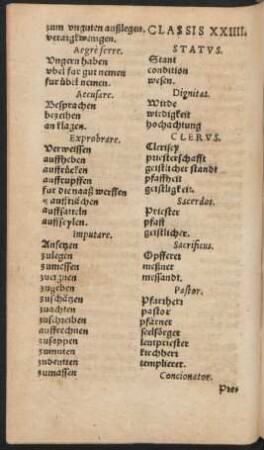 zum vnguten außlegen.
vetargkwenigen.
Aegrè ferre.
Vngern haben
vbel fur gut nemen
fur übel nemen.
Accusare.
Besprachen
bezeihen
an klagen.
Exprobrare.
Verweissen
auffheben
auffrücken
auffrupffen
fur die naaß werffen
auffsatteln
auffseylen.
Imputare.
Ansetzen
zulegen
zumessen
zueignen
zugeben
zuschätzen
zuachten
zuschreiben
auffrechnen
zusappen
zumuten
zudeutten
zumassen
CLASSIS XXIIII.
STATVS.
Stant
condition
wesen.
Dignitas.
Wirde
wirdigkeit
hochachtung
CLERVS.
Clerisey
priesterschafft
geistlicher standt
pfaffheit
geistligkeit.
Sacerdos.
Priester
pfaff
geistlicher.
Sacrificus.
Opfferer
meßner
messandt.
Pastor.
Pfarrherr
pastor
pfärner
seelsörger
leutpriester
kirchherr
templierer.
Concionator.
Pre-